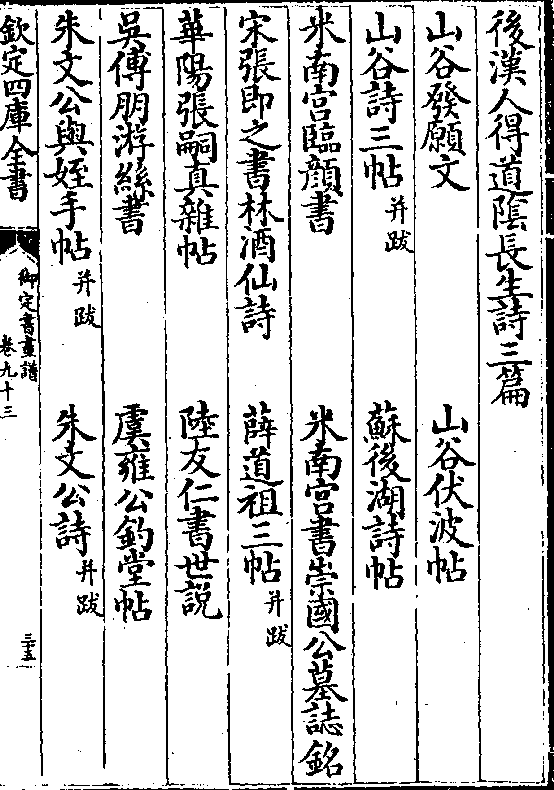 後漢人得道陰長生詩三篇
山谷發願文　山谷伏波帖
山谷詩三帖并跋　蘇後湖詩帖
米南宫臨顔書　米南宫書崇國公墓誌銘
宋張即之書林酒仙詩　薛道祖三帖并跋
華陽張嗣真雜帖　陸友仁書世說
吳傅朋游絲書　虞雍公釣堂帖
朱文公與姪手帖并跋　朱文公詩并跋
欽定四庫全書　御定書畫譜　卷九十三　三五